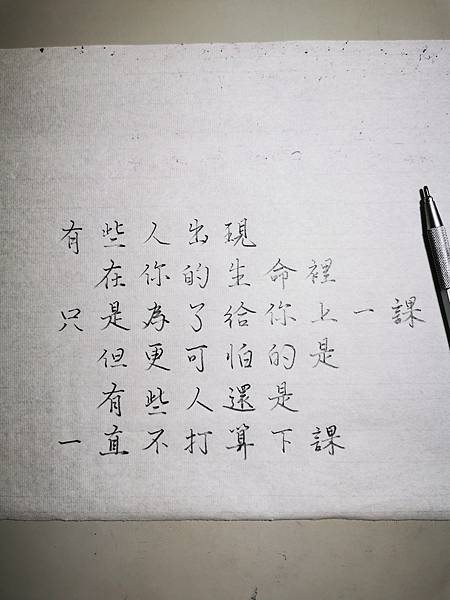 有些人出現
在你的生命裡
只是為了給你上一課
但更可怕的是
有些人還是
一直不打算下課